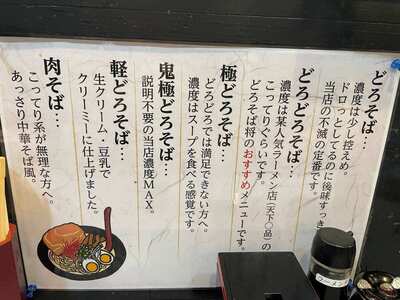 どろそば…
濃度は少し控えめ。
ドロっとしてるのに後味すっき
当店の不滅の定番です。
どろどろそば…
濃度は某大人気ラーメン店(天下〇品)の
こってりぐらいです。
どろそば将のおすすめメニューです。
極どろそば…
どろどろでは満足できない方へ。
濃度はスープを食べる感覚です。
鬼極どろそば…
説明不要の当店濃度MAX。
軽どろそば…
生クリーム・豆乳で
クリーミーに仕上げました。
肉そば…
こってり系が無理な方へ。
あっさり中華そば風。